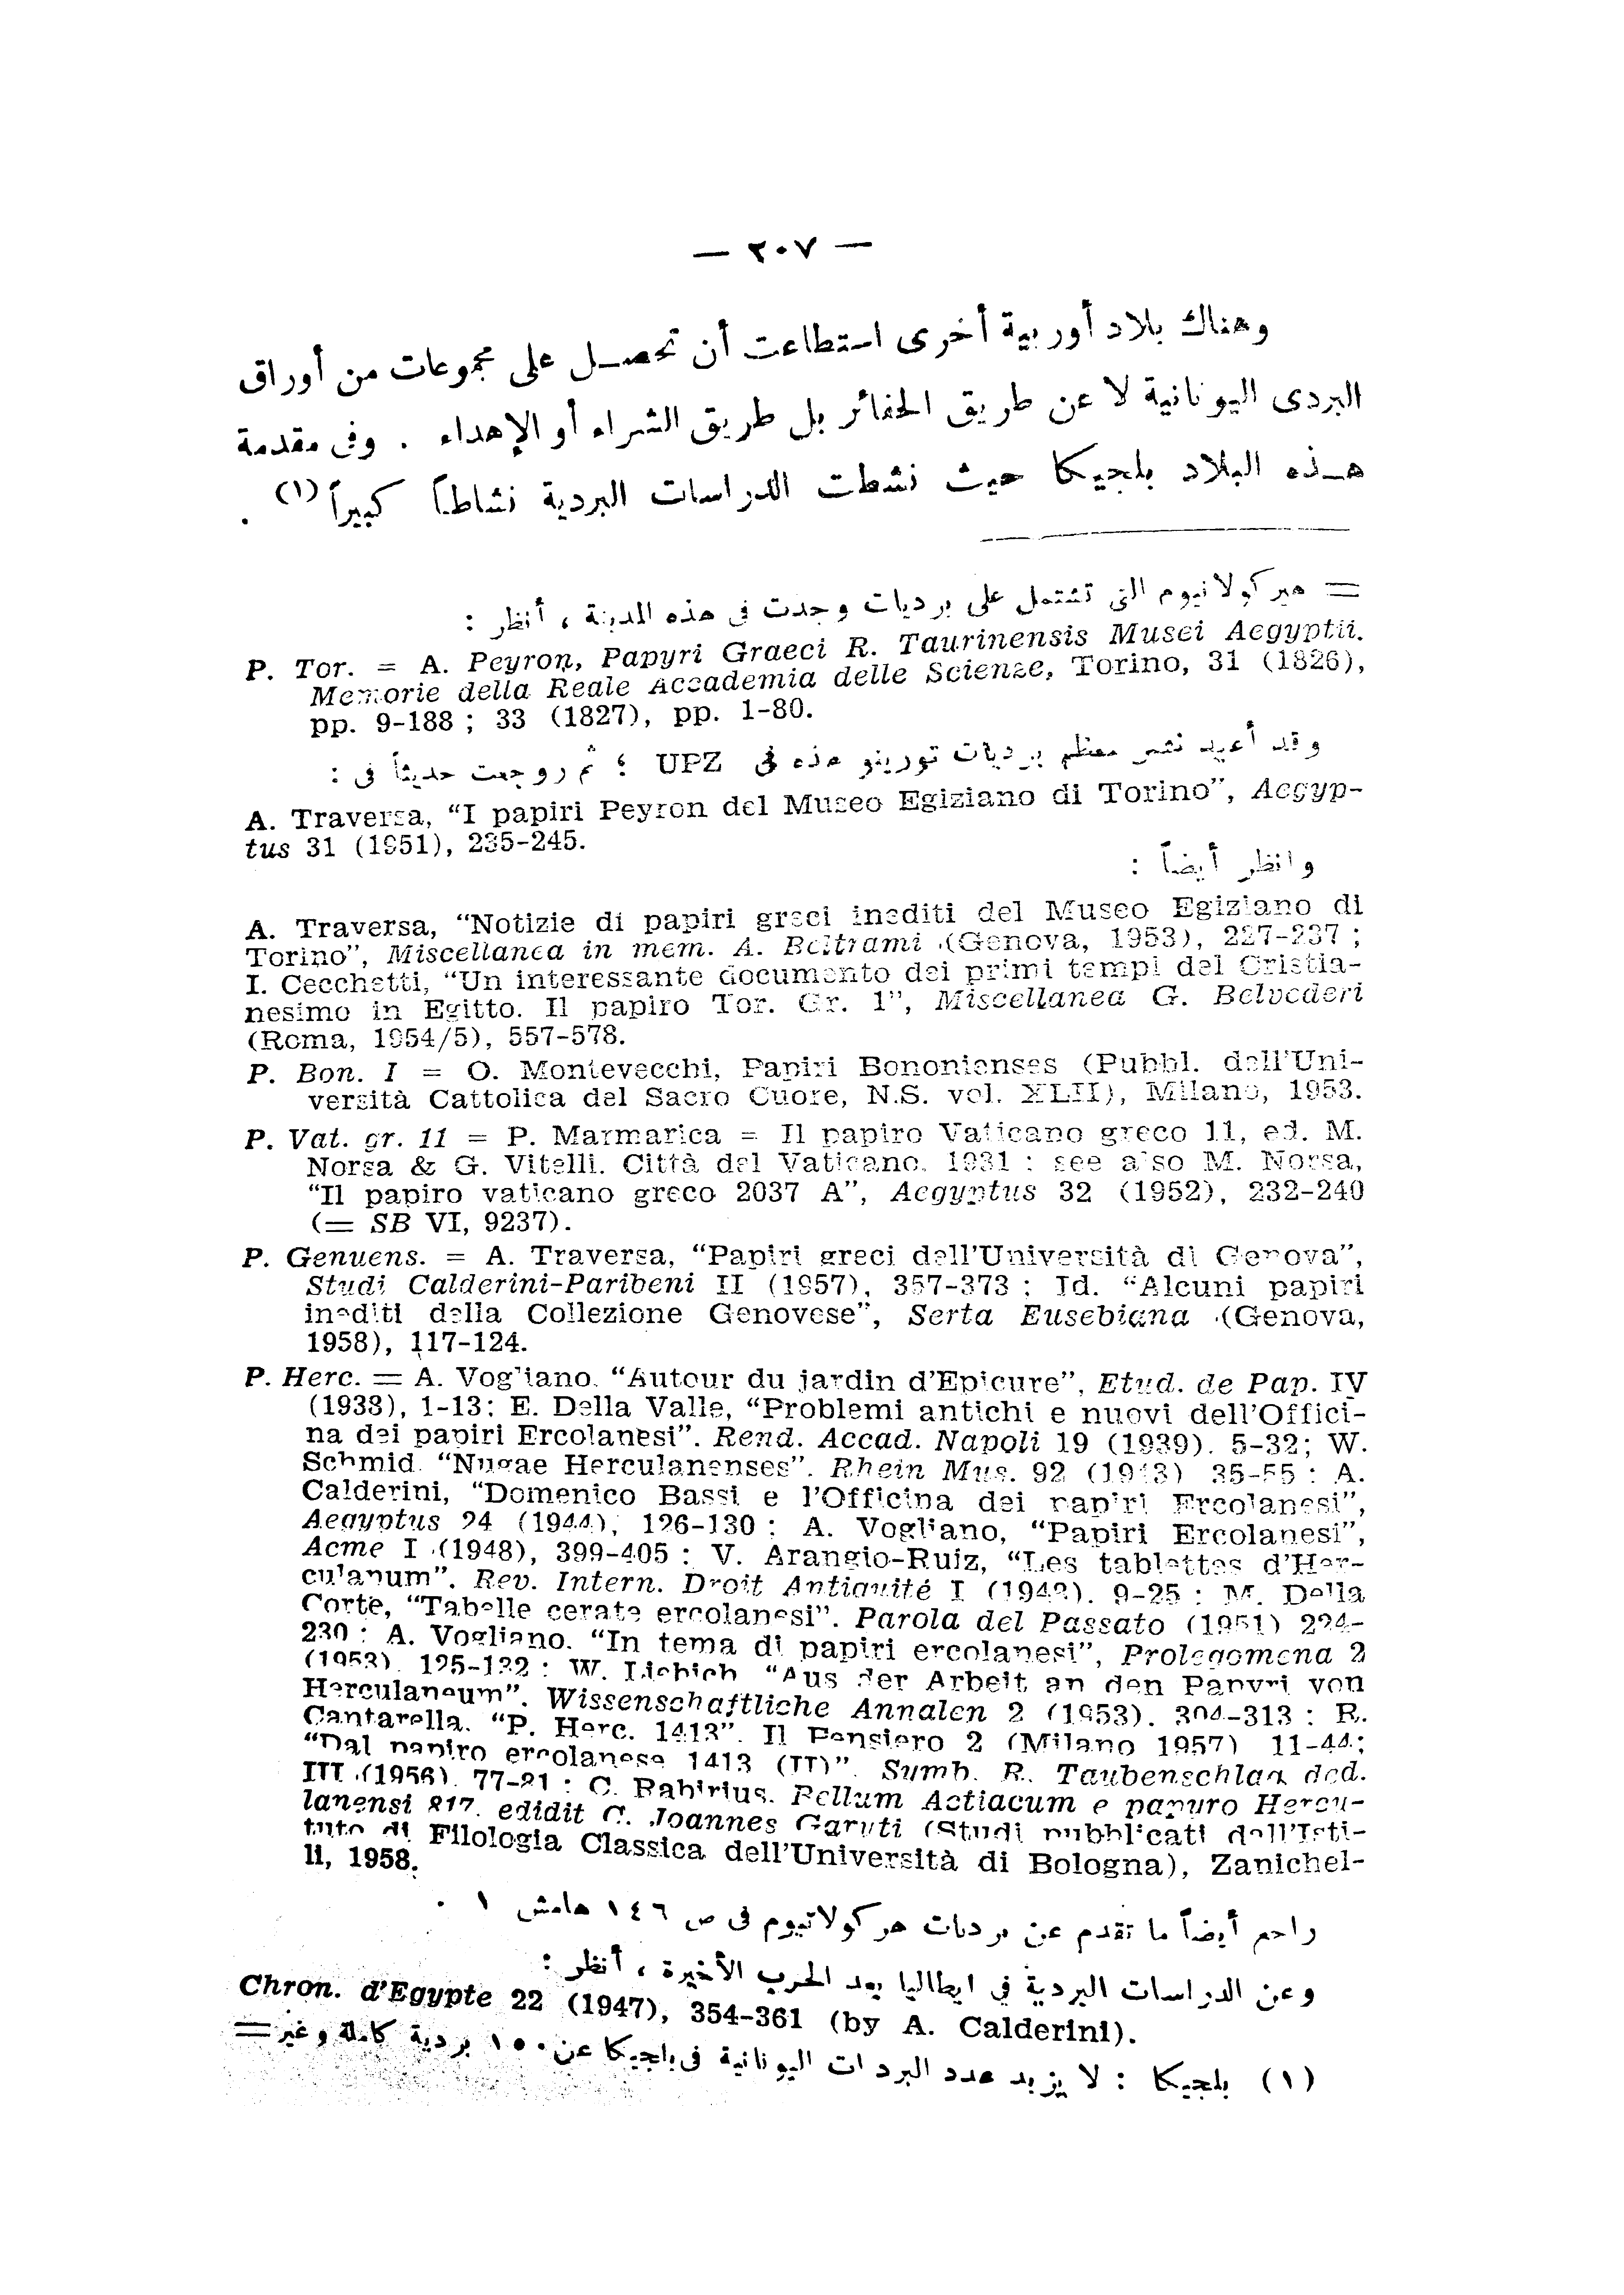 — ٢٠٧ —
وهناك بلاد أوربية أخرى استطاعت أن تحصل على مجموعات من أوراق
البردى اليونانية لا عن طريق الحفائر بل طريق الشراء أو الإهداء . وفى مقدمة
هذه البلاد بلجيكا حيث نشطت الدراسات البردية نشاطاً كبيراً (١) .
= هيركولانيوم التى تشتمل على برديات وجدت فى هذه المدينة ، أنظر :
P. Tor. = A. Peyron, Papyri Graeci R. Taurinensis Musei Aegyptii.
Memorie della Reale Accademia delle Scienze, Torino, 31 (1826),
pp. 9-188 ; 33 (1827), pp. 1-80.
وقد أعيد نشر معظم برديات تورينو هذه فى UPZ ؛ ثم روجعت حديثاً فى :
A. Traversa, “I papiri Peyron del Museo Egiziano di Torino”, Aegyp-
tus 31 (1951), 235-245.
وانظر أيضاً :
A. Traversa, “Notizie di papiri greci inediti del Museo Egiziano di
Torino”, Miscellanea in mem. A. Beltrami (Genova, 1953), 227-237 ;
I. Cecchetti, “Un interessante documento dei primi tempi del Cristia-
nesimo in Egitto. Il papiro Tor. Gr. 1”, Miscellanea G. Belvederi
(Roma, 1954/5), 557-578.
P. Bon. I = O. Montevecchi, Papiri Bononienses (Pubbl. dell'Uni-
versità Cattolica del Sacro Cuore, N.S. vol. XLII), Milano, 1953.
P. Vat. gr. 11 = P. Marmarica = Il papiro Vaticano greco 11, ed. M.
Norsa & G. Vitelli. Città del Vaticano. 1931 : see also M. Norsa,
“Il papiro vaticano greco 2037 A”, Aegyptus 32 (1952), 232-240
(= SB VI, 9237).
P. Genuens. = A. Traversa, “Papiri greci dell'Università di Genova”,
Studi Calderini-Paribeni II (1957), 357-373 ; Id. “Alcuni papiri
inediti della Collezione Genovese”, Serta Eusebiana (Genova,
1958), 117-124.
P. Herc. = A. Vogliano. “Autour du jardin d'Epicure”, Etud. de Pap. IV
(1938), 1-13; E. Della Valle, “Problemi antichi e nuovi dell'Offici-
na dei papiri Ercolanesi”. Rend. Accad. Napoli 19 (1939). 5-32; W.
Schmid. “Nugae Herculanenses”. Rhein Mus. 92 (1943) 35-55 : A.
Calderini, “Domenico Bassi e l'Officina dei papiri Ercolanesi”,
Aegyptus 24 (1944), 126-130 : A. Vogliano, “Papiri Ercolanesi”,
Acme I (1948), 399-405 : V. Arangio-Ruiz, “Les tablettes d'Her-
culanum”. Rev. Intern. Droit Antiquité I (1948). 9-25 : M. Della
Corte, “Tabelle cerate ercolanesi”. Parola del Passato (1951) 224-
230 : A. Vogliano. “In tema di papiri ercolanesi”, Prolegomena 2
(1953). 125-132 : W. Liebich “Aus der Arbeit an den Papyri von
Herculaneum”. Wissenschaftliche Annalen 2 (1953). 304-313 : R.
Cantarella. “P. Herc. 1413”. Il Pensiero 2 (Milano 1957) 11-44;
“Dal papiro ercolanese 1413 (II)”. Symb. R. Taubenschlag ded.
III (1956). 77-81 : C. Rabirius. Bellum Actiacum e papyro Hercu-
lanensi 817. edidit C. Joannes Garuti (Studi pubblicati dall'Isti-
tuto di Filologia Classica dell'Università di Bologna), Zanichel-
li, 1958.
راجع أيضاً ما تقدم عن برديات هركولانيوم فى ص ١٤٦ هامش ١ .
وعن الدراسات البردية في ايطاليا بعد الحرب الأخيرة ، أنظر :
Chron. d'Egypte 22 (1947), 354-361 (by A. Calderini).
(١) بلجيكا : لا يزيد عدد البرديات اليونانية فى بلجيكا عن ١٥٠ بردية كاملة وغير =